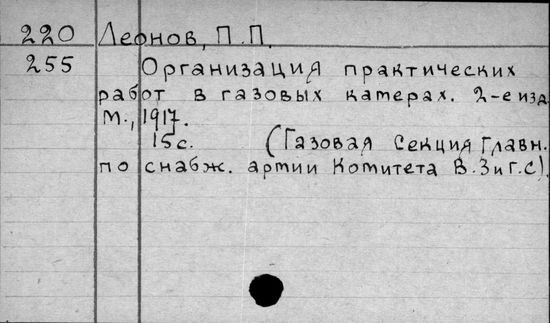 220 Леонов, П.П.
255 Организация практических
работ в газовых камерах. 2-е изд.
М., 1917.
15 с. (Газовая Секция Главн.
по снабж. армии Комитета В.З и Г.С).